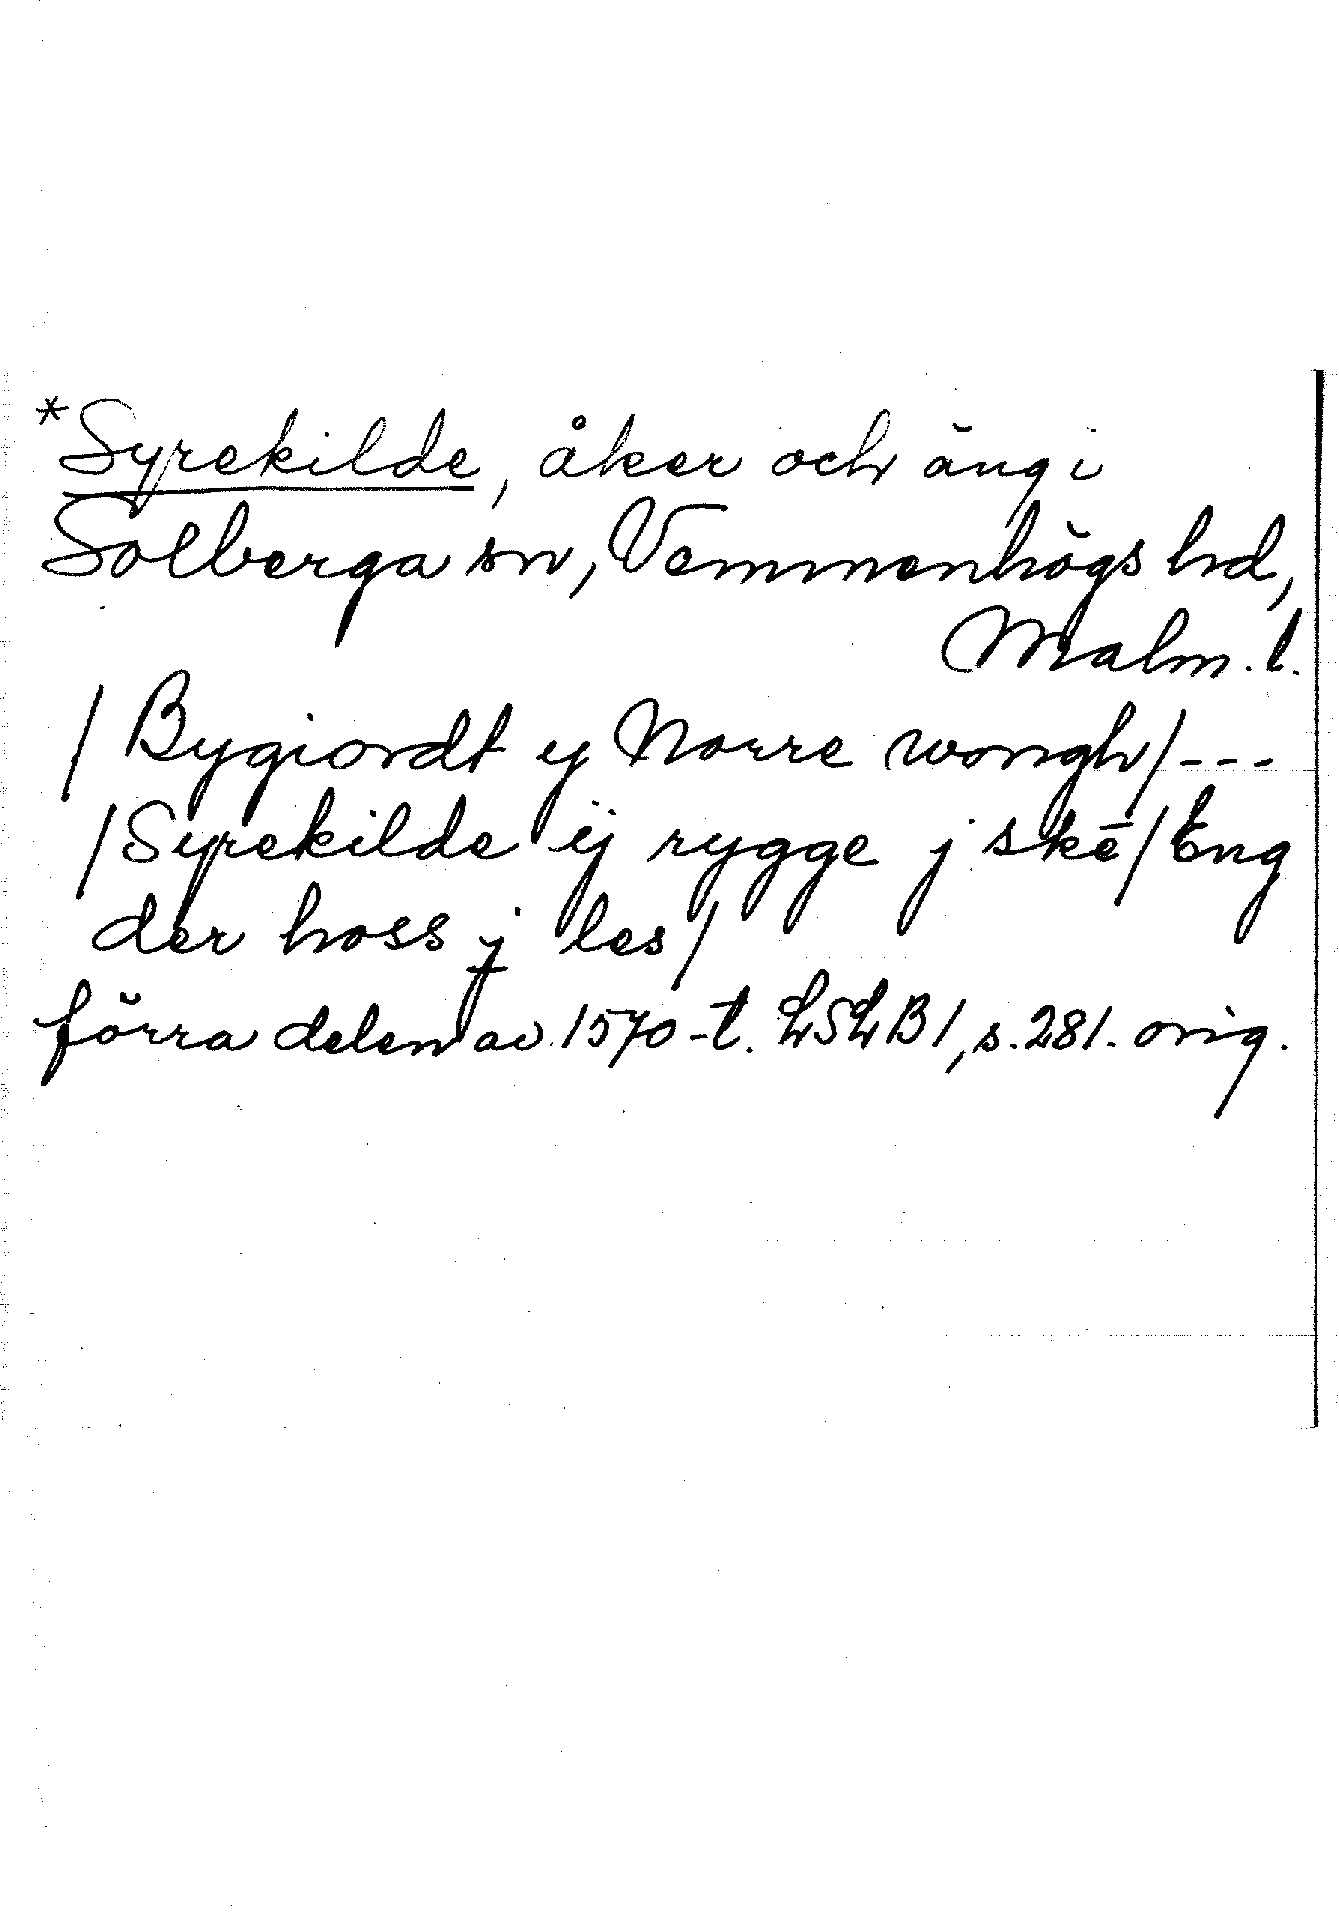 *Syrekilde, åker och äng i
Solberga sn, Vemmenhögs hd,
Malm. l.
/ Bygiordt ij Norre wongh/---
/Syrekilde ij rygge j skē/Eng
der hoss j̵ les/
förra delen av 1570-t. LSLB1, s.281. orig.